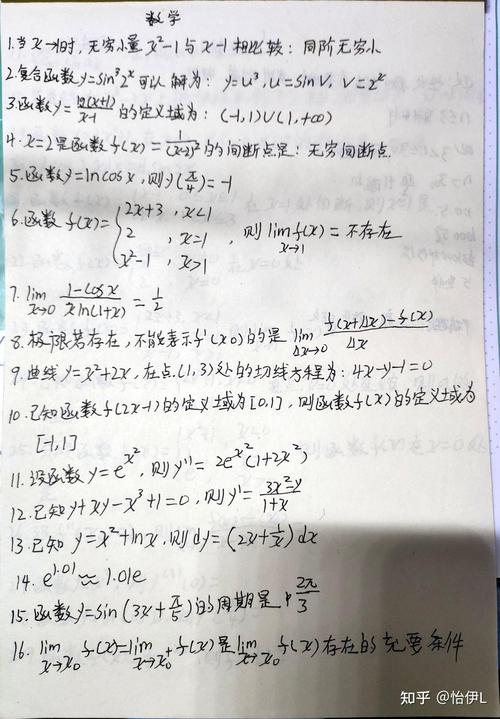 数学
1.当x→1时,无穷小量x²-1与x-1相比较:同阶无穷小
2.复合函数y=sin³2ˣ可以解为:y=u³,u=sinV,V=2ˣ
3.函数y=ln(x+1)/(x-1)的定义域为:(-1,1)∪(1,+∞)
4.x=2是函数f(x)=1/(x-2)²的间断点是:无穷间断点
5.函数y=lncosx,则y(π/4)=-1
6.函数f(x)={2x+3,x<1
2,x=1,则lim x→1 f(x)=不存在
x²-1,x>1
7.lim x→0 (1-cosx)/(xln(1+x))=1/2
8.极限若存在,不能表示f'(x0)的是lim Δx→0 (f(x+Δx)-f(x))/Δx
9.曲线y=x²+2x,在点(1,3)处的切线方程为:4x-y-1=0
10.已知函数f(2x-1)的定义域为[0,1],则函数f(x)的定义域为
[-1,1]
11.设函数y=e^x²,则y''=2e^x²(1+2x²)
12.已知y+xy-x³+1=0,则y'=(3x²-y)/(1+x)
13.已知y=x²+lnx,则dy=(2x+1/x)dx
14.e^1.01≈1.01e
15.函数y=sin(3x+π/5)的周期是 2π/3
16.lim x→x₀⁻ f(x)=lim x→x₀⁺ f(x)是lim x→x₀ f(x)存在的充要条件
知乎 @怡伊L